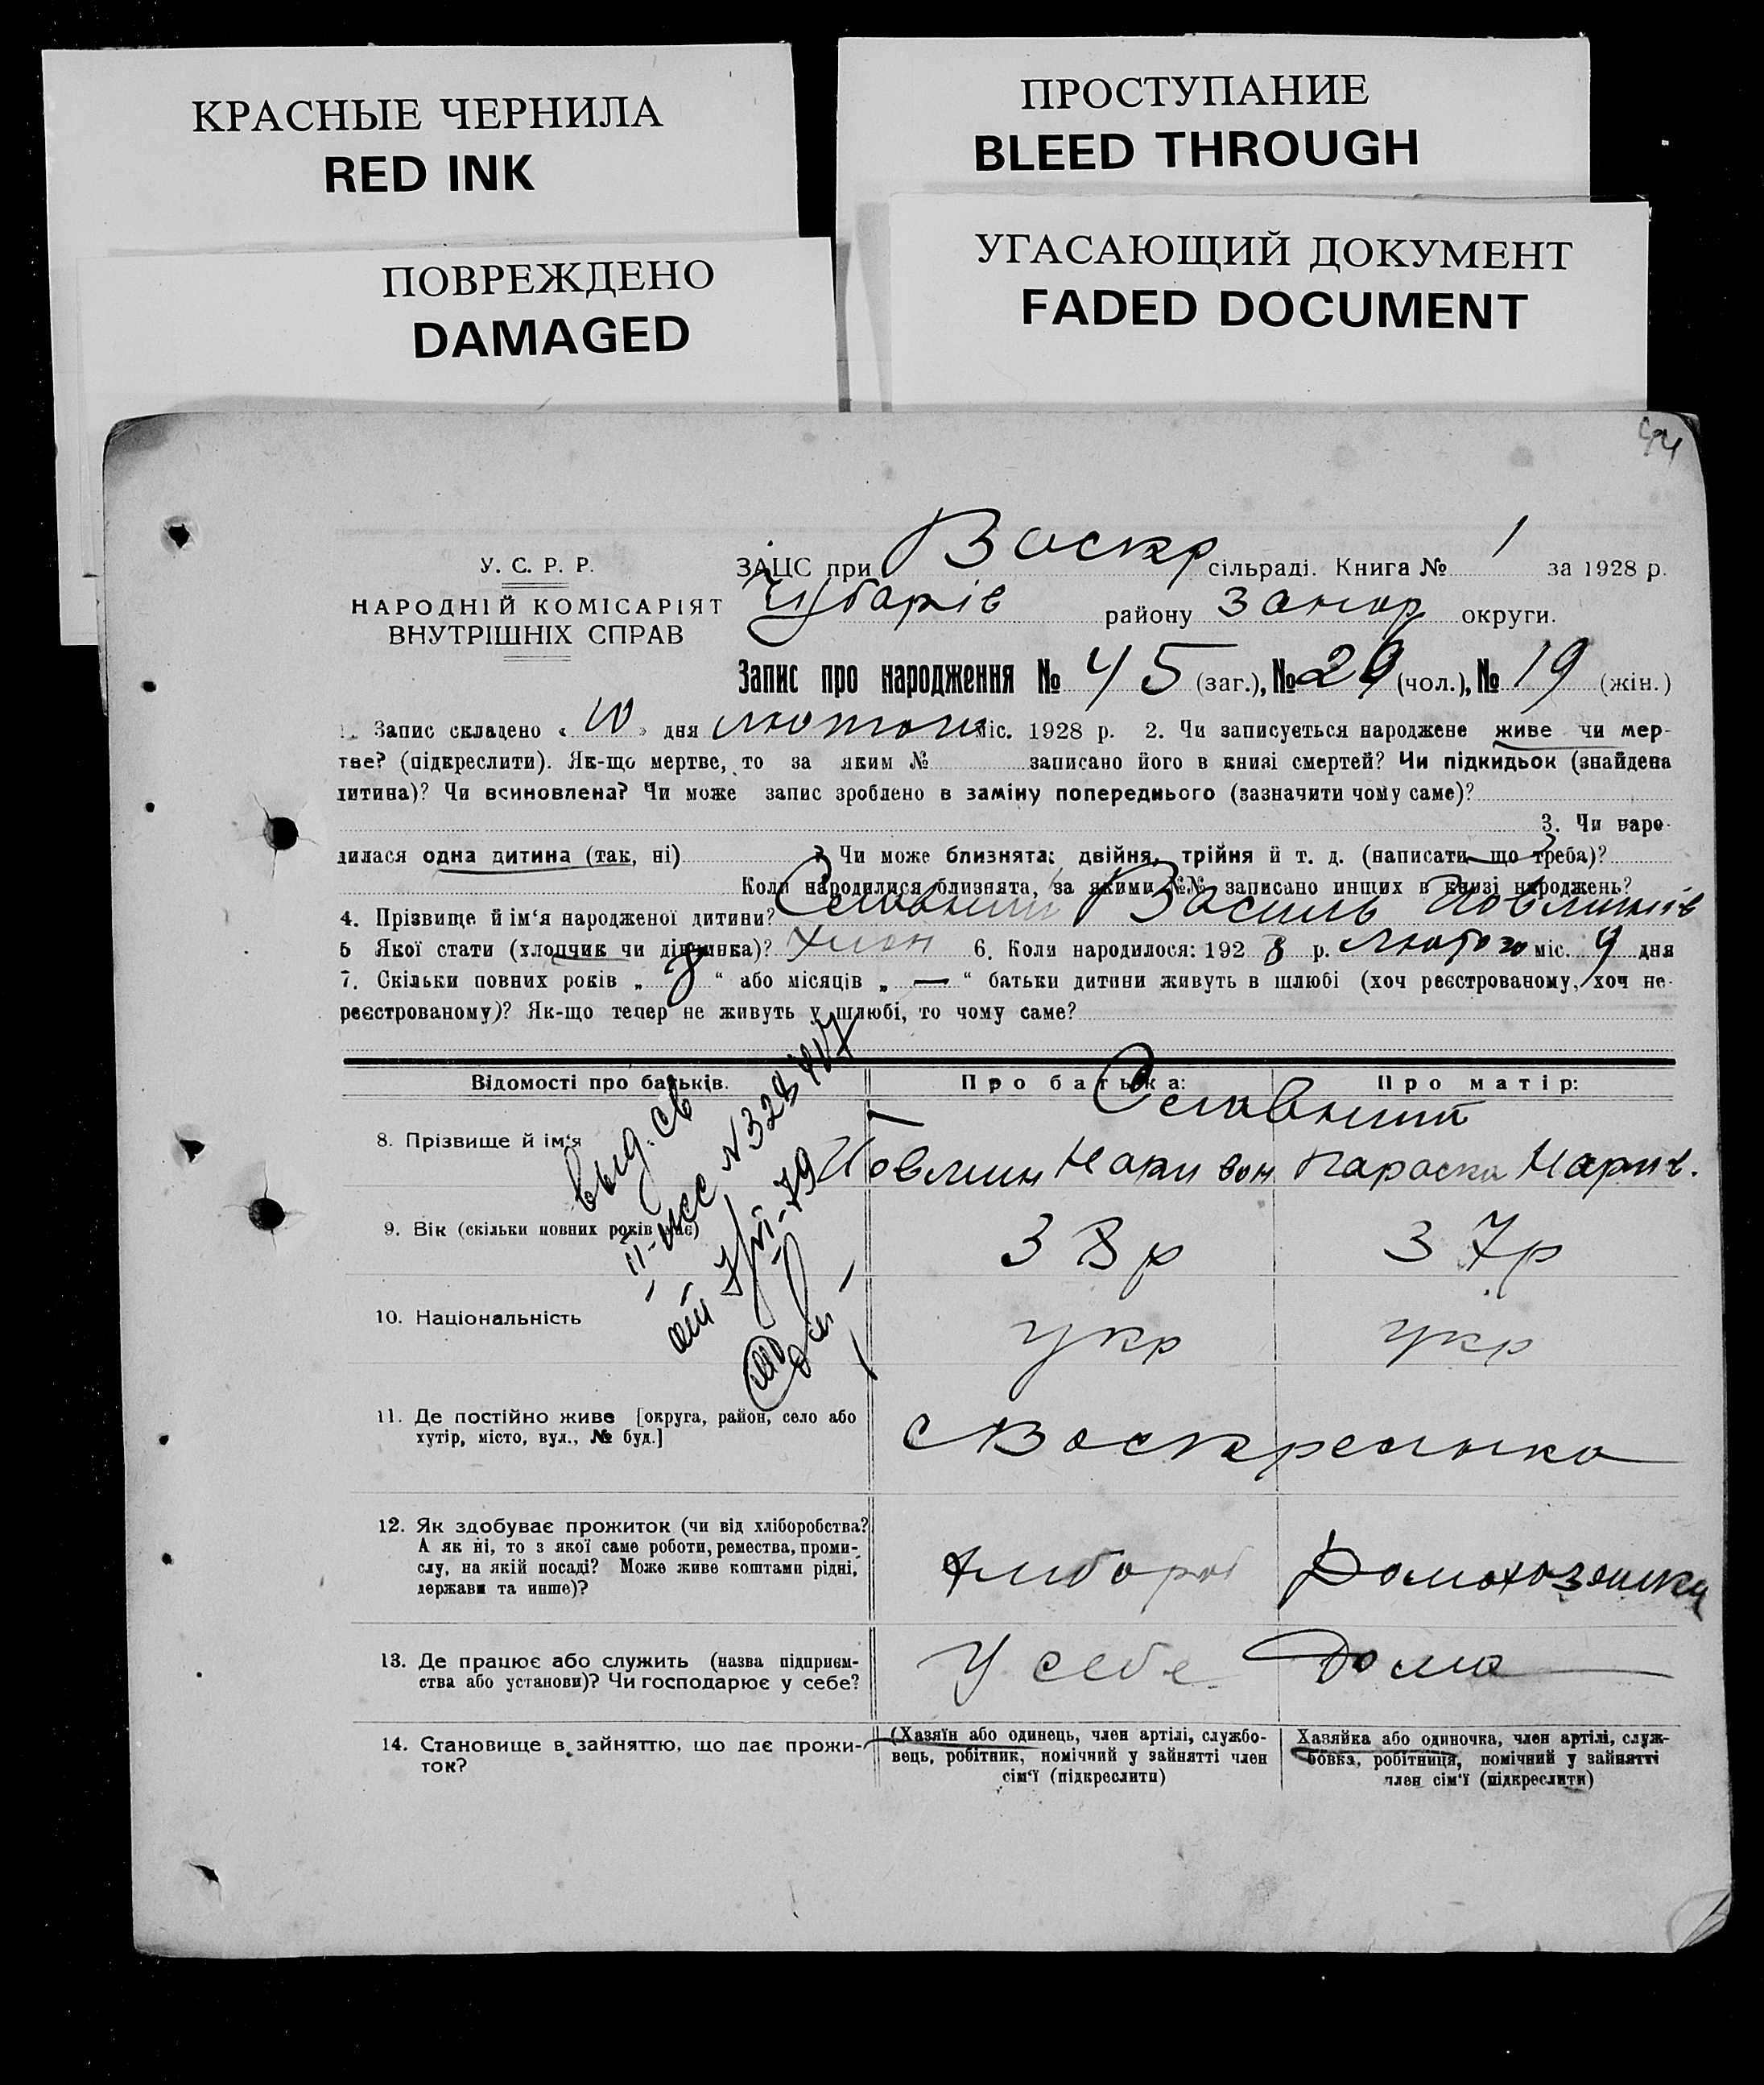 КРАСНЫЕ ЧЕРНИЛА
RED INK
ПРОСТУПАНИЕ
BLEED THROUGH
ПОВРЕЖДЕНО
DAMAGED
УГАСАЮЩИЙ ДОКУМЕНТ
FADED DOCUMENT
У. С. Р. Р.
НАРОДНІЙ КОМІСАРІЯТ
ВНУТРІШНІХ СПРАВ
ЗАЦС при Воскр сільраді. Книга № 1 за 1928 р.
Чубарів району Запор округи.
Запис про народження № 45 (заг.), № 29 (чол.), № 19 (жін.)
1. Запис складено « 10 » дня лютого міс. 1928 р. 2. Чи записується народжене живе чи мер-
тве? (підкреслити). Як-що мертве, то за яким № записано його в книзі смертей? Чи підкидьок (знайдена
дитина)? Чи всиновлена? Чи може запис зроблено в заміну попереднього (зазначити чому саме)?
3. Чи наро-
дилася одна дитина (так, ні) ? Чи може близнята: двійня, трійня й т. д. (написати що треба)?
Коли народилися близнята, за якими №№ записано инших в книзі народжень?
4. Прізвище й ім'я народженої дитини? Василь
5 Якої стати (хлопчик чи дівчинка)? хлоп 6. Коли народилося: 1928 р. Лютого міс. 9 дня
7. Скільки повних років „ “ або місяців „ — “ батьки дитини живуть в шлюбі (хоч реєстрованому, хоч не-
реєстрованому)? Як-що тепер не живуть у шлюбі, то чому саме?
Відомості про батьків. Про батька: Про матір:
8. Прізвище й ім'я
Параска
9. Вік (скільки повних років має) 38 р 37 р
10. Національність укр укр
11. Де постійно живе [округа, район, село або
хутір, місто, вул., № буд.]
с Воскресенка
12. Як здобуває прожиток (чи від хліборобства?
А як ні, то з якої саме роботи, ремества, проми-
слу, на якій посаді? Може живе коштами рідні,
держави та инше)?
хлібороб Домохозяйка
13. Де працює або служить (назва підприєм-
ства або установи)? Чи господарює у себе?
У себе Дома
14. Становище в зайняттю, що дає прожи-
ток?
(Хазяїн або одинець, член артілі, службо-
вець, робітник, помічний у зайнятті член
сім'ї (підкреслити)
Хазяйка або одиночка, член артілі, служ-
бовка, робітниця, помічний у зайнятті
член сім'ї (підкреслити)